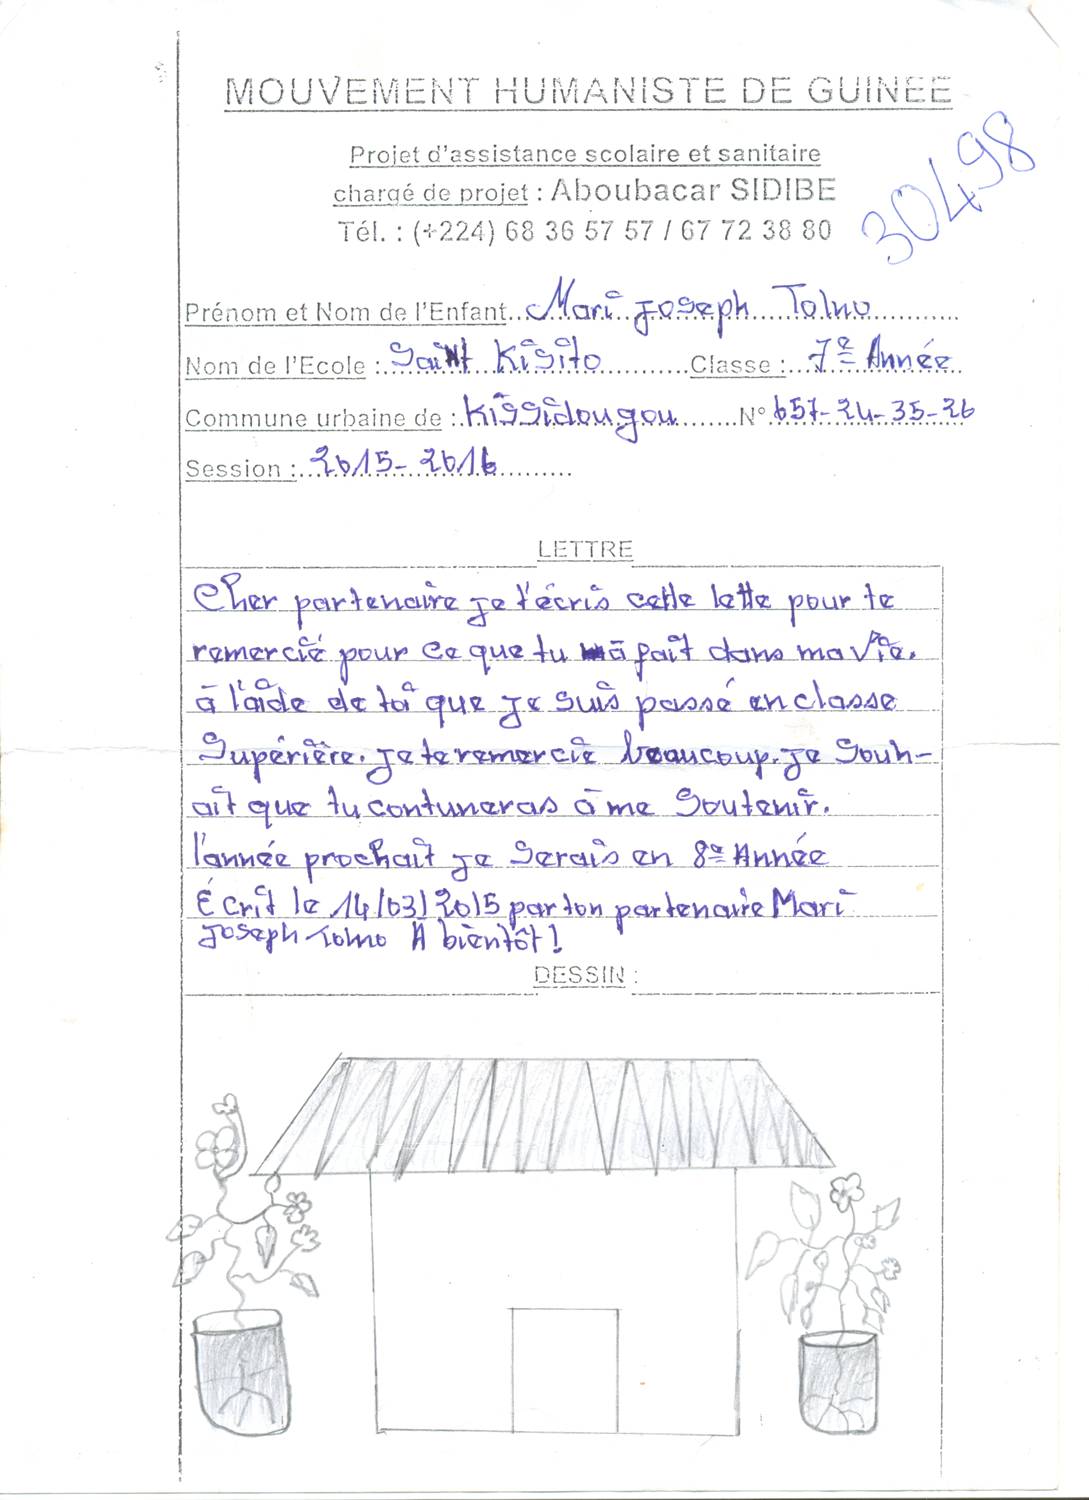 MOUVEMENT HUMANISTE DE GUINEE
Projet d'assistance scolaire et sanitaire
chargé de projet : Aboubacar SIDIBE
Tél. : (+224) 68 36 57 57 / 67 72 38 80
30498
Prénom et Nom de l'Enfant..Mari Joseph Tolno..........
Nom de l'Ecole :.Saint Kisito.......Classe :..7e Année..
Commune urbaine de :.Kissidougou.......N° 657-24-35-26
Session :...2015-2016.........
LETTRE
Cher partenaire je t'écris cette lette pour te
remercié pour ce que tu à fait dans ma vie.
à l'aide de toi que je suis passé en classe
Supérière. je te remercie beaucoup. je Souh-
ait que tu contuneras à me Soutenir.
l'année prochait je Serais en 8e Année
Écrit le 14/03/2015 par ton partenaire Mari
Joseph Tolno À bientôt!
DESSIN :